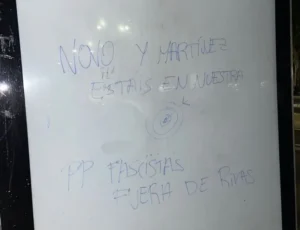 NOVO Y MARTÍNEZ
ESTÁIS EN NUESTRA
PP FASCISTAS
FUERA DE RIVAS